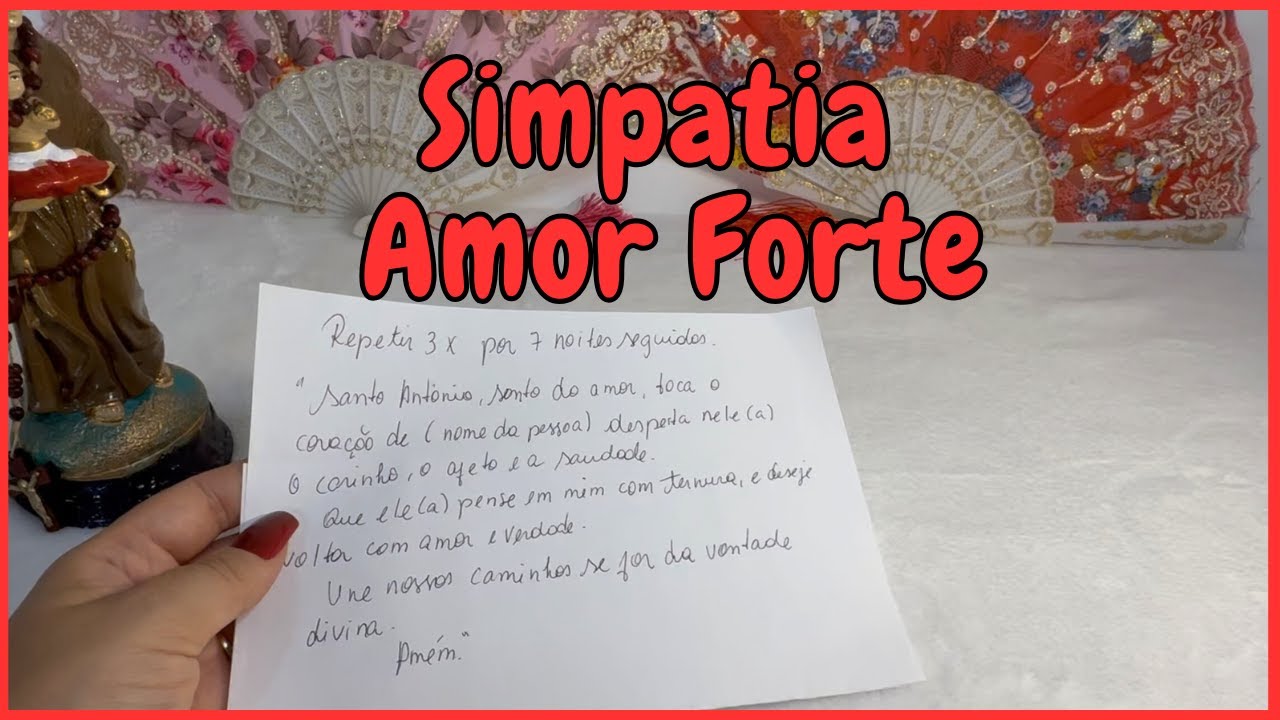 Simpatia
Amor Forte
Repetir 3x por 7 noites seguidas.
"Santo Antônio, santo do amor, toca o
coração de (nome da pessoa) desperta nele(a)
o carinho, o afeto e a saudade.
Que ele(a) pense em mim com ternura, e deseje
voltar com amor e verdade.
Une nossos caminhos se for da vontade
divina.
Amém."